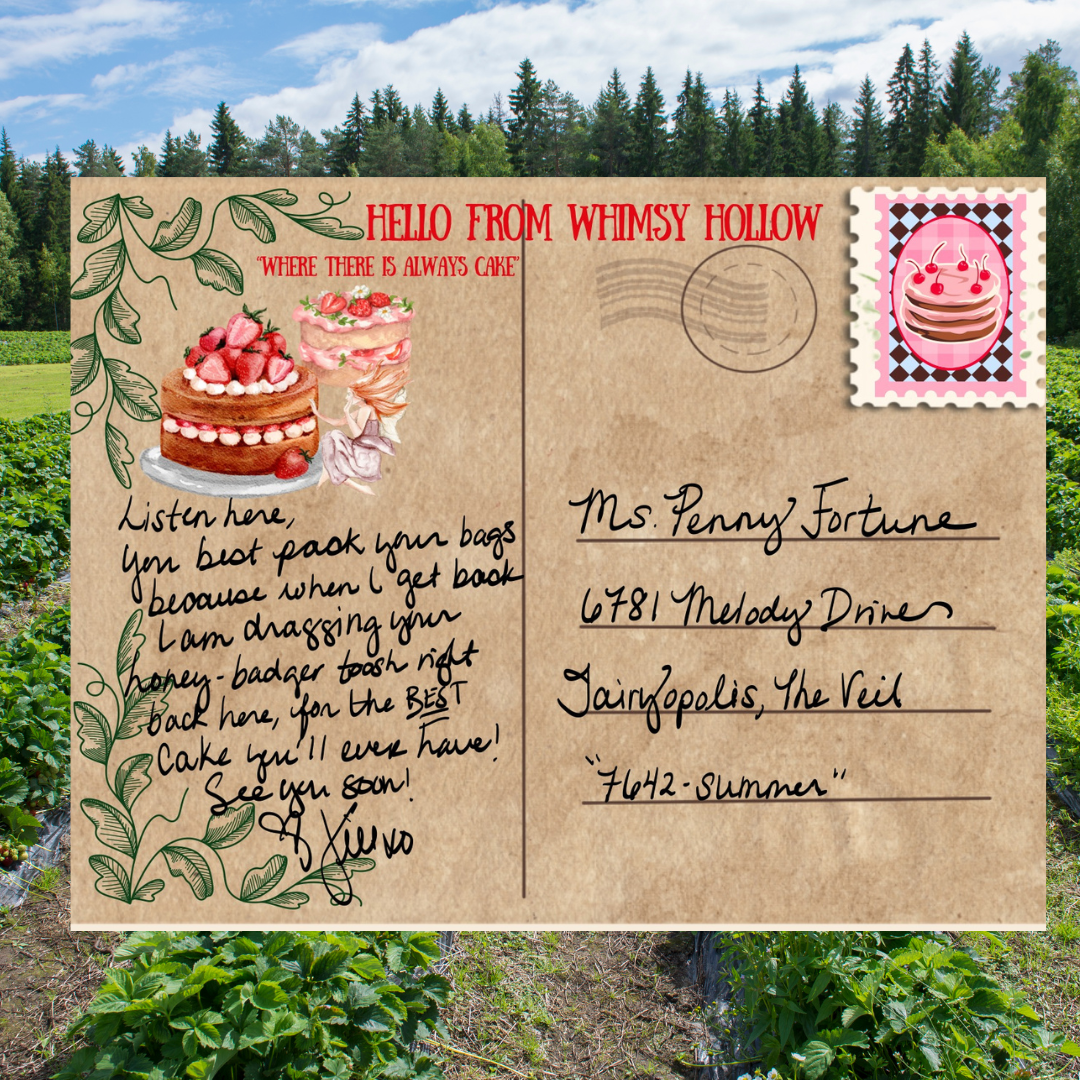 HELLO FROM WHIMSY HOLLOW
"WHERE THERE IS ALWAYS CAKE"
Listen here,
You best pack your bags
because when I get back
I am dragging your
honey-badger toosh right
back here, for the BEST
Cake you'll ever have!
See you soon!
xo
Ms. Penny Fortune
6781 Melody Drive
Fairyopolis, The Veil
"7642-summer"